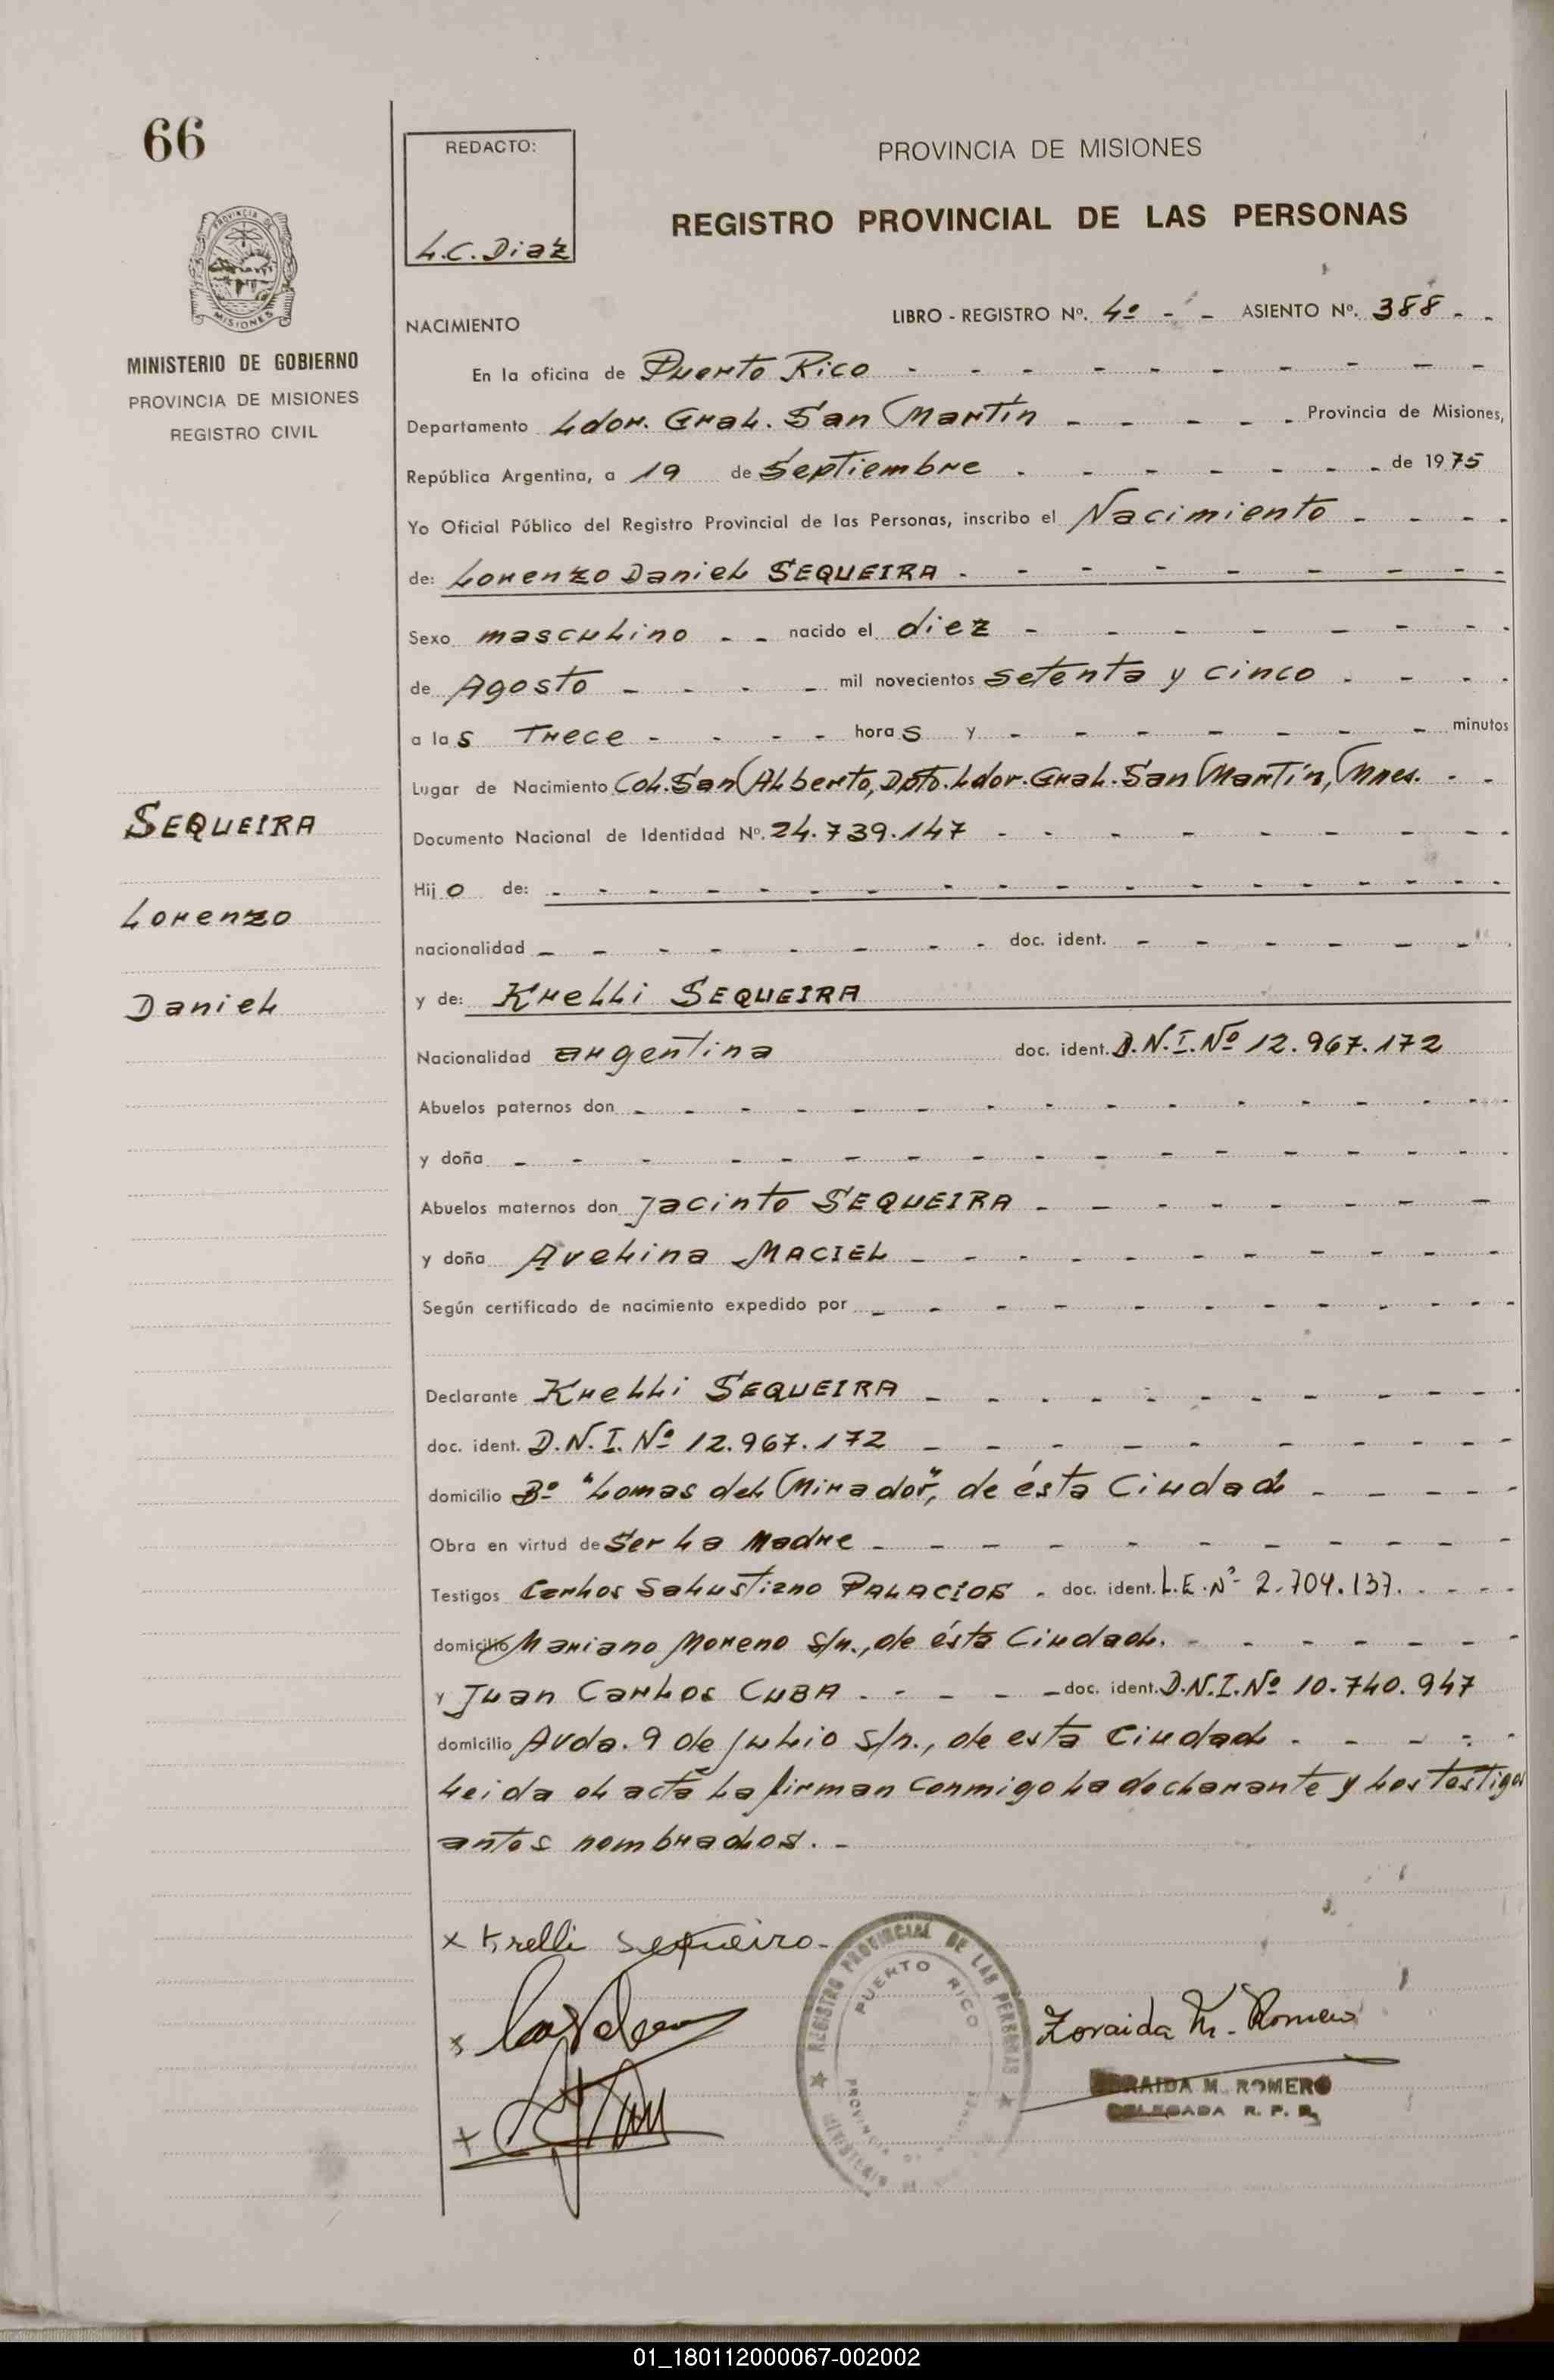 66
REDACTO:
L.C. Diaz
PROVINCIA DE MISIONES
REGISTRO PROVINCIAL DE LAS PERSONAS
PROVINCIA DE
MISIONES
MINISTERIO DE GOBIERNO
PROVINCIA DE MISIONES
REGISTRO CIVIL
NACIMIENTO LIBRO - REGISTRO Nº. 4º - - ASIENTO Nº. 388 - -
En la oficina de Puerto Rico - - - - - - - - - -
Departamento Ldor. Gral. San Martín - - - - - Provincia de Misiones,
República Argentina, a 19 de Septiembre - - - - - - - de 1975
Yo Oficial Público del Registro Provincial de las Personas, inscribo el Nacimiento - - - -
de: Lorenzo Daniel SEQUEIRA - - - - - - - - -
Sexo masculino - - nacido el diez - - - - - - - -
de Agosto - - - - mil novecientos setenta y cinco - - - -
a las Trece - - - - horas y - - - - - - - minutos
Lugar de Nacimiento Col. San Alberto, Dpto. Ldor. Gral. San Martín, Mnes. - -
SEQUEIRA
Documento Nacional de Identidad Nº. 24.739.147 - - - - - - - - -
Hijo de: - - - - - - - - - - - - - - - -
Lorenzo
nacionalidad - - - - - - - - - doc. ident. - - - - - -
y de: Krelli SEQUEIRA
Daniel
Nacionalidad argentina doc. ident. D.N.I. Nº 12.967.172
Abuelos paternos don - - - - - - - - - - - - - - -
y doña - - - - - - - - - - - - - - - -
Abuelos maternos don Jacinto SEQUEIRA - - - - - - - -
y doña Avelina MACIEL - - - - - - - - - - -
Según certificado de nacimiento expedido por - - - - - - - - - - -
Declarante Krelli SEQUEIRA - - - - - - - - - - - -
doc. ident. D.N.I. Nº 12.967.172 - - - - - - - - - -
domicilio Bº "Lomas del Mirador", de ésta Ciudad - - - - -
Obra en virtud de Ser La Madre - - - - - - - - - -
Testigos Carlos Salustiano PALACIOS - doc. ident. L.E. Nº 2.704.137. - - - -
domicilio Mariano Moreno s/n., de ésta Ciudad. - - - - - - -
y Juan Carlos CUBA - - - - - doc. ident. D.N.I. Nº 10.740.947
domicilio Avda. 9 de Julio s/n., de esta Ciudad - - - - -
Leida el acta La firman conmigo La declarante y Los testigos
antes nombrados. -
x Krelli Sequeiro -
REGISTRO PROVINCIAL DE LAS PERSONAS
PUERTO RICO
PROVINCIA DE MISIONES
x
Zoraida M. Romero
x
ZORAIDA M. ROMERO
DELEGADA R. P. P.
01_180112000067-002002